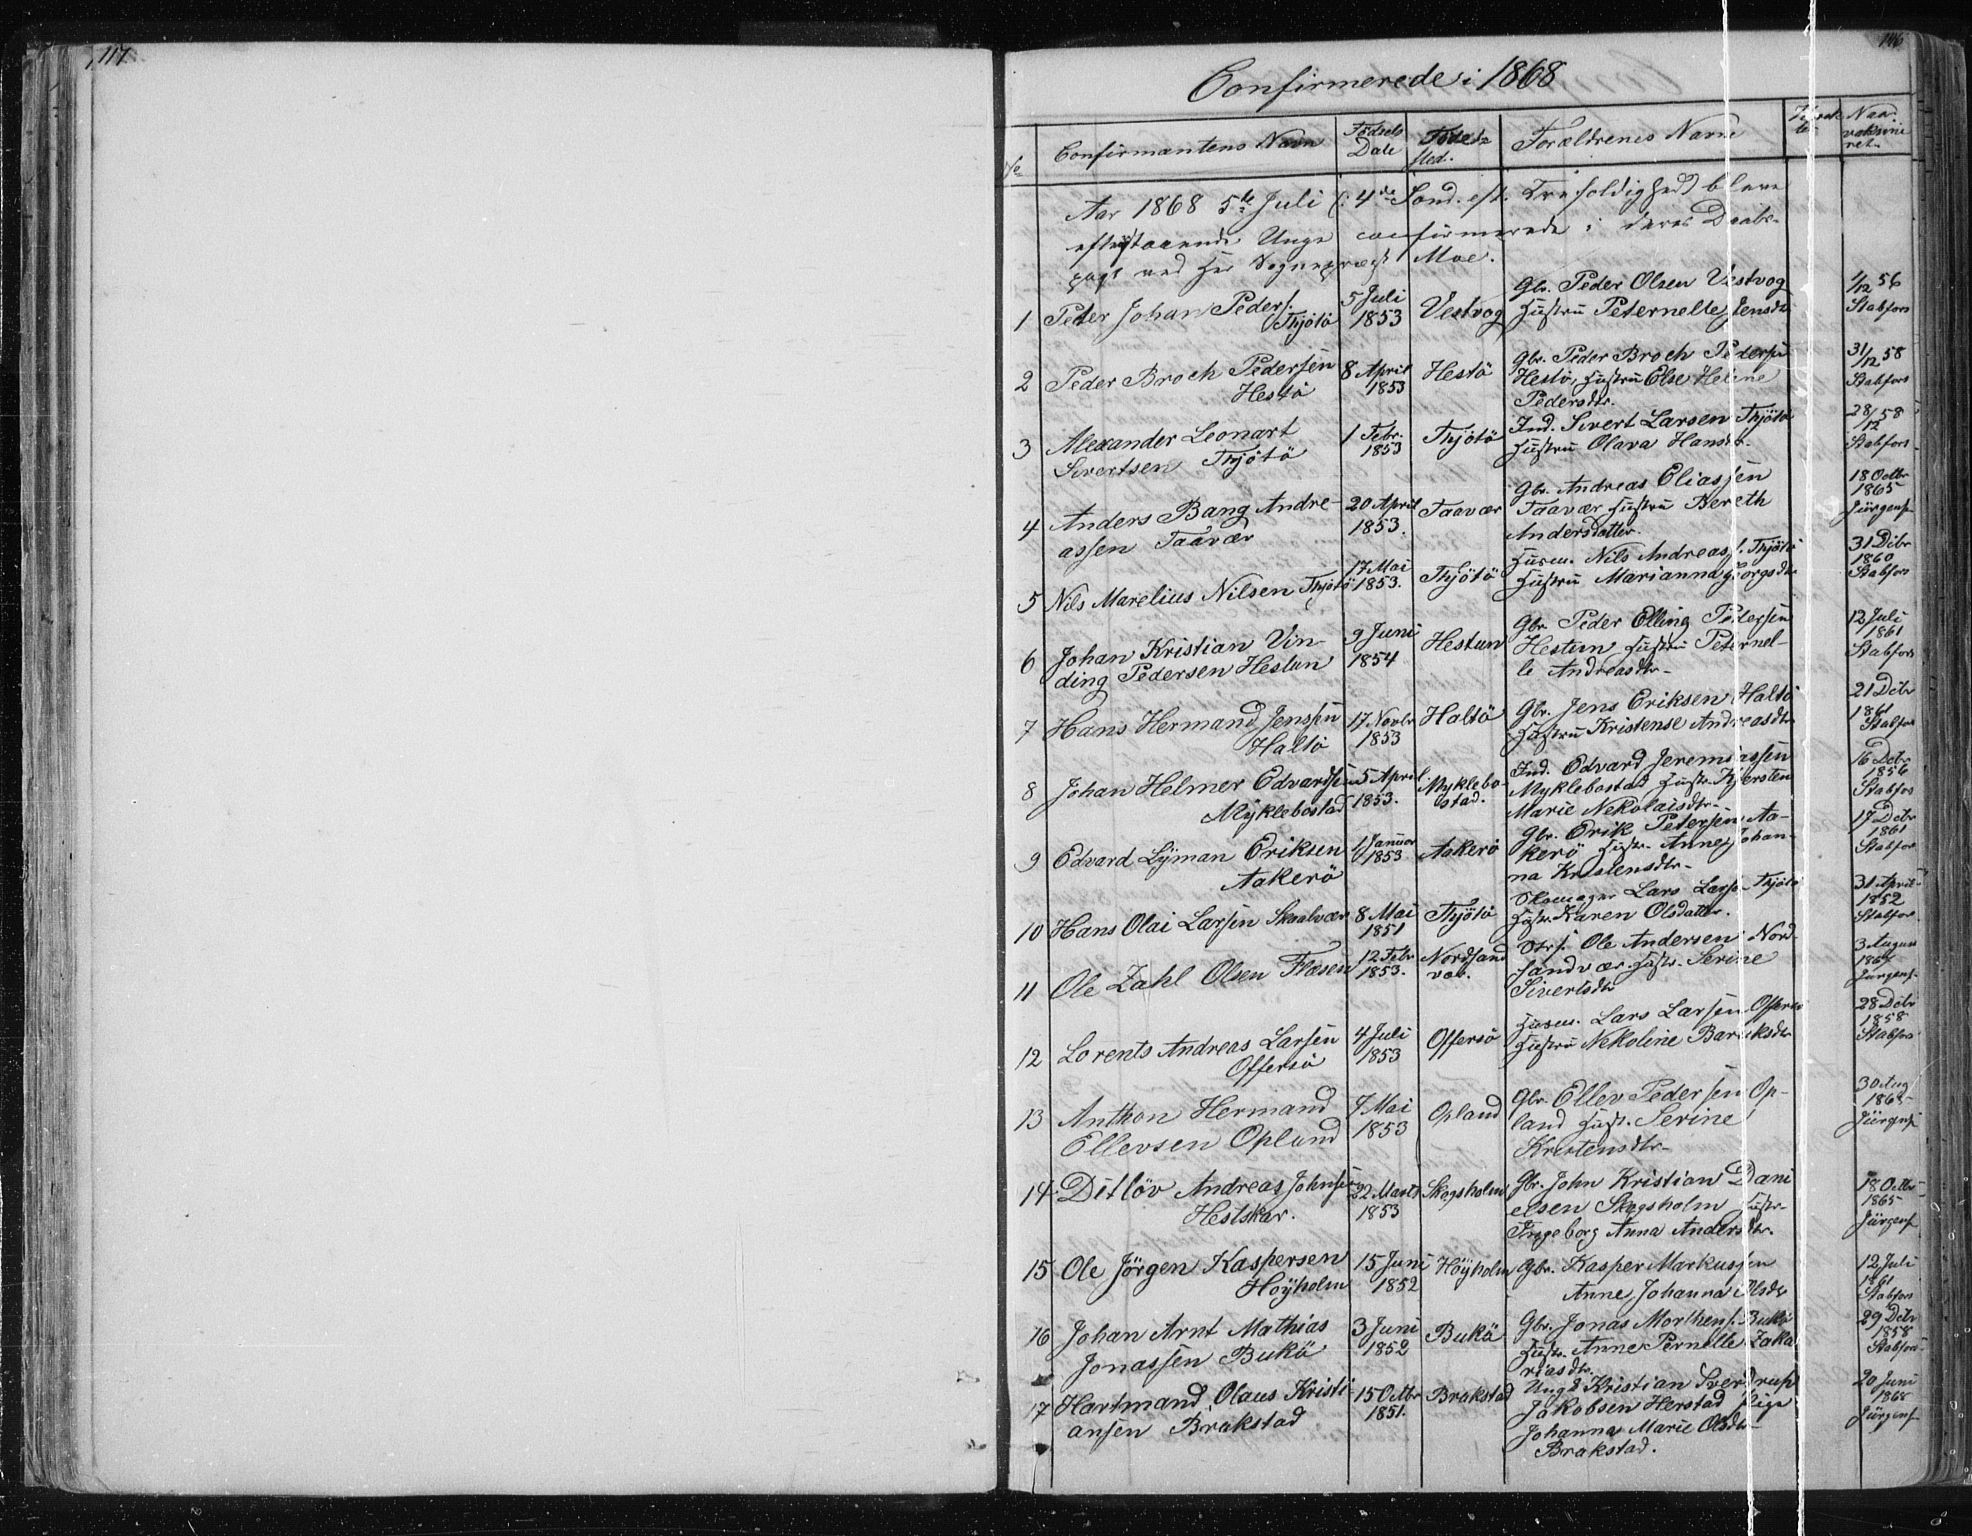 117
146
Confirmerede i 1868
No
Confirmantens Navn
Fødsels
Date
Fødested.
Forældrenes Navne
Naar
vaksine
ret.
Aar 1868 5te Juli (: 4de Sønd. eft. Trefoldighed) bleve
efterstaaende Unge confirmerede i deres Daabs-
pagt ved Hr Sognepræst Moe.
1 Peter Johan Peders.
Thjötö
5 Juli
1853
Vestvog
Gbr. Peder Olsen Vestvog
Hustru Peternelle Jensdtr
1/12 56
Stabfors
2 Peder Broch Pedersen
Hestö
8 April
1853
Hestö
Gbr. Peder Broch Pedersen
Hestö, Hustru Else Helene
Pedersdtr.
31/12 58
Stabfors
3 Alexander Leonart
Sivertsen Thjötö
1 Febr.
1853
Thjötö
Ind. Sivert Larsen Thjötö
Hustru Olava Hansdtr.
28/12 58
Stabfors
4 Anders Bang Andre-
assen Taavær
20 April
1853.
Taavær
Gbr. Andreas Eliassen
Taavær Hustru Bereth
Andersdatter.
18 Octbr
1865
Jürgens.
5 Nils Marelius Nilsen Thjötö
17 Mai
1853.
Thjötö
Husm. Nils Andreass. Thjötö
Hustru Marianna Georgsdtr
31 Dcbr
1860
Stabfors
6 Johan Kristian Vin-
ding Pedersen Hestun
9 Juni
1854
Hestun
Gbr Peder Elling Pedersen
Hestun Hustru Peternel-
le Andreasdtr.
12 Juli
1861
Stabfors
7 Hans Hermand Jenssen
Haltö
17 Novbr
1853
Haltö
Gbr. Jens Eriksen Haltö
Hustru Kristense Andreasdtr
21 Dcbr
1861
Stabfors
8 Johan Helmer Edvardsen
Myklebostad
5 April
1853.
Myklebo-
stad.
Ind. Edvard Jeremiassen
Myklebostad Hustr. Kjersten
Marie Nekolaisdtr.
16 Dcbr
1856
Stabfors
9 Edvard Lyman Eriksen
Aakerö
1 Januar
1853
Aakerö
Gbr. Erik Petersen Aa-
kerö Hustr. Anne Johan-
na Kristensdtr.
17 Dcbr
1861
Stabfor
10 Hans Olai Larsen Skaalvær
8 Mai
1851
Thjötö
Skomager Lars Larsen Thjötö
Hustr. Karen Olsdatter.
31 April
1852
Stabfor
11 Ole Zahl Olsen Flæsen
12 Febr
1853.
Nordsand
vær.
Ole Andersen Nord-
sandvær Hustr. Serine
Sivertsdtr
3 August
Jürgens.
12 Lorents Andreas Larsen
Offersö
4 Juli
1853
Offersö
Husm. Lars Larsen Offersö
Hustru Nekoline Baruksdtr
28 Dcbr
1858
Stabfors
13 Anthon Hermand
Ellevsen Opland
7 Mai
1853
Opland
Gbr. Ellev Pedersen Op-
land Hustr. Serine
Kristensdtr.
30 Aug
1865
Jürgens.
14 Ditløv Andreas Johnsen
Hestskar.
22 Marts
1853
Skogsholm
Gbr. John Kristian Dani
elsen Skogsholm Hustr.
Ingeborg Anna Andersdtr.
18 Octbr
1865
Jürgens.
15 Ole Jörgen Kaspersen
Höyholm
15 Juni
1852
Höyholm
Gbr. Kasper Markussen
Anne Johanna Olsdtr
12 Juli
1861
Stabfors
16 Johan Arnt Mathias
Jonassen Bukö
3 Juni
1852
Bukö
Gbr. Jonas Morthens. Bukö
Hustr. Anne Pernelle Zaka
riasdtr.
29 Dcbr
1858
Stabfors
17 Hartmand Olaus Kristi
ansen Brakstad
15 Octbr
1851.
Brakstad
Ungk. Kristian Sverdrup
Jakobsen Herstad Pige
Johanna Marie Olsdtr
Brakstad.
20 Juni
1868
Jürgens.